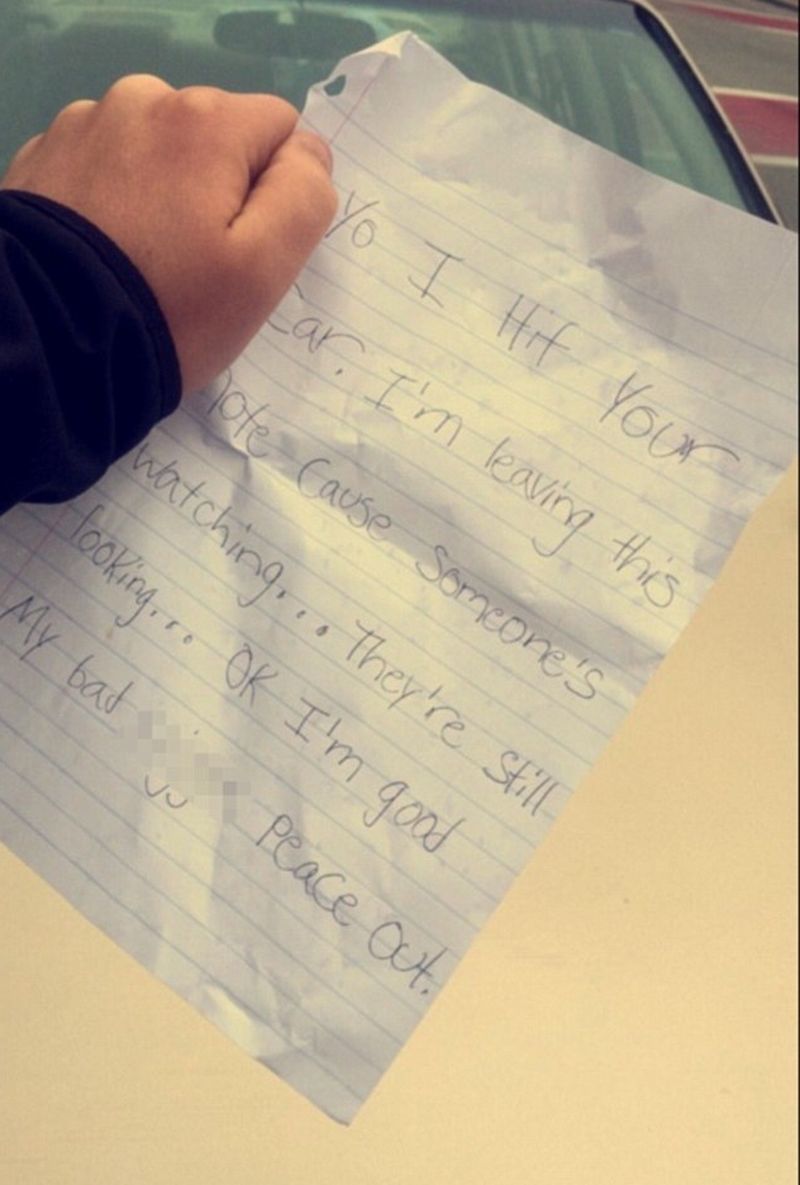 Yo I Hit Your
Car. I'm leaving this
Note Cause Someone's
watching... They're Still
looking... OK I'm good
My bad
Peace Out.